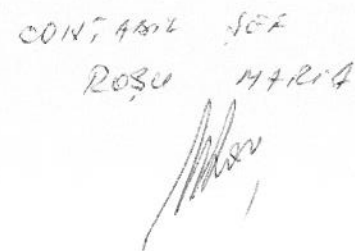 CONTABIL ȘEF
ROȘU MARIA